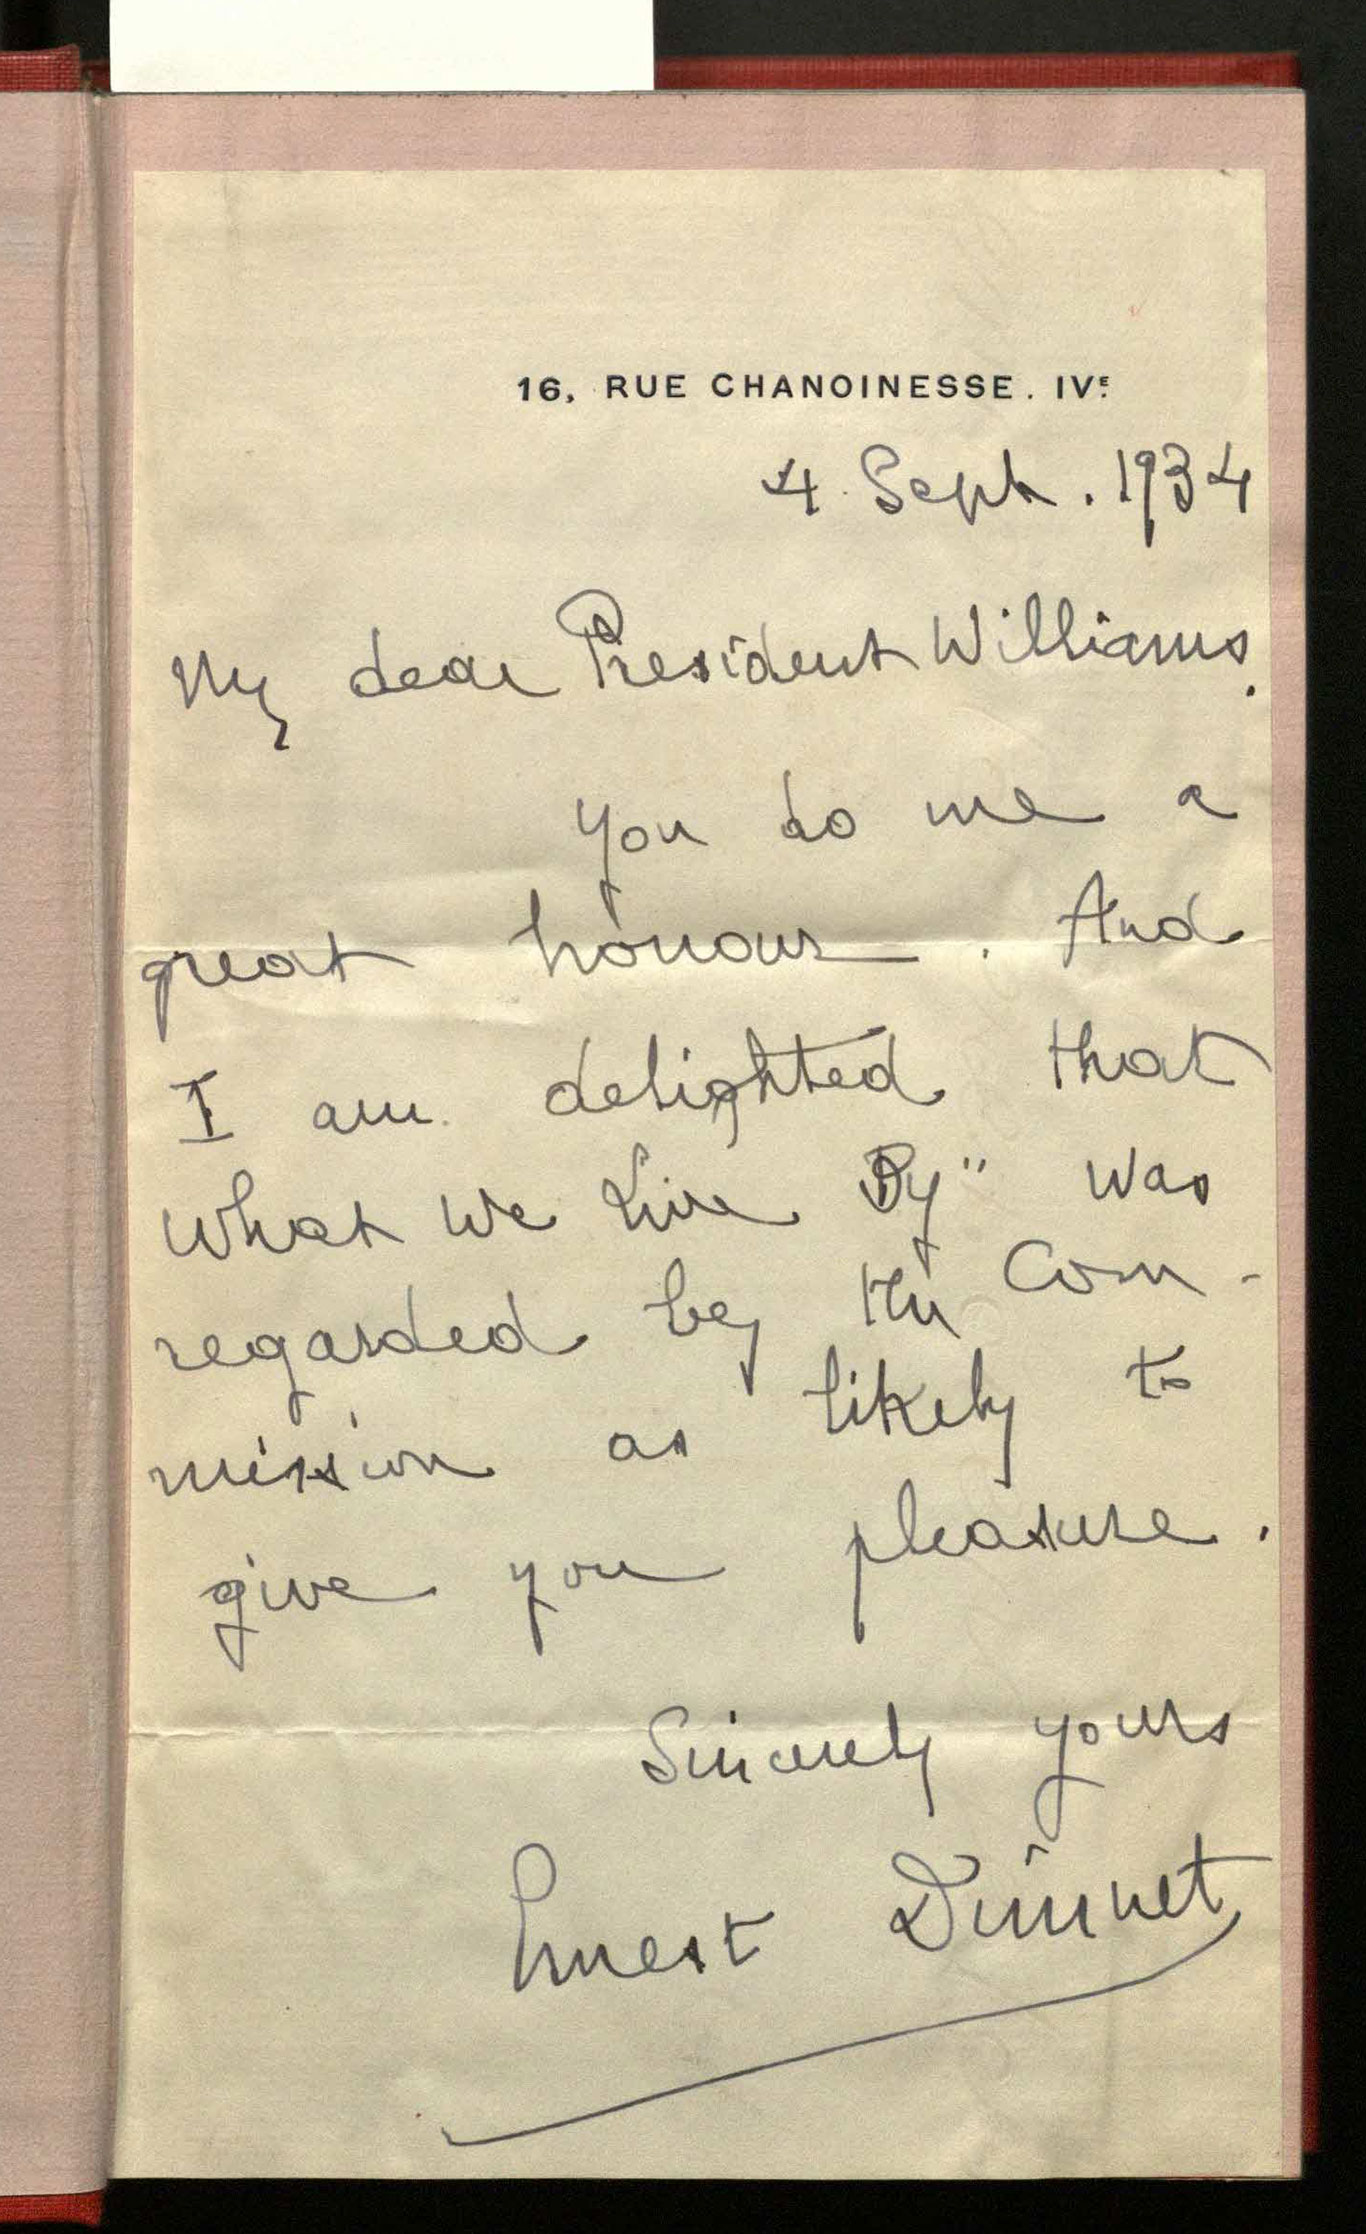 16, RUE CHANOINESSE. IVE
4 Sept. 1934
My dear President Williams.
You do me a
great honour. And
I am delighted that
What We Live By" was
regarded by the Com-
mission as likely to
give you pleasure.
Sincerely yours
Ernest Dimnet